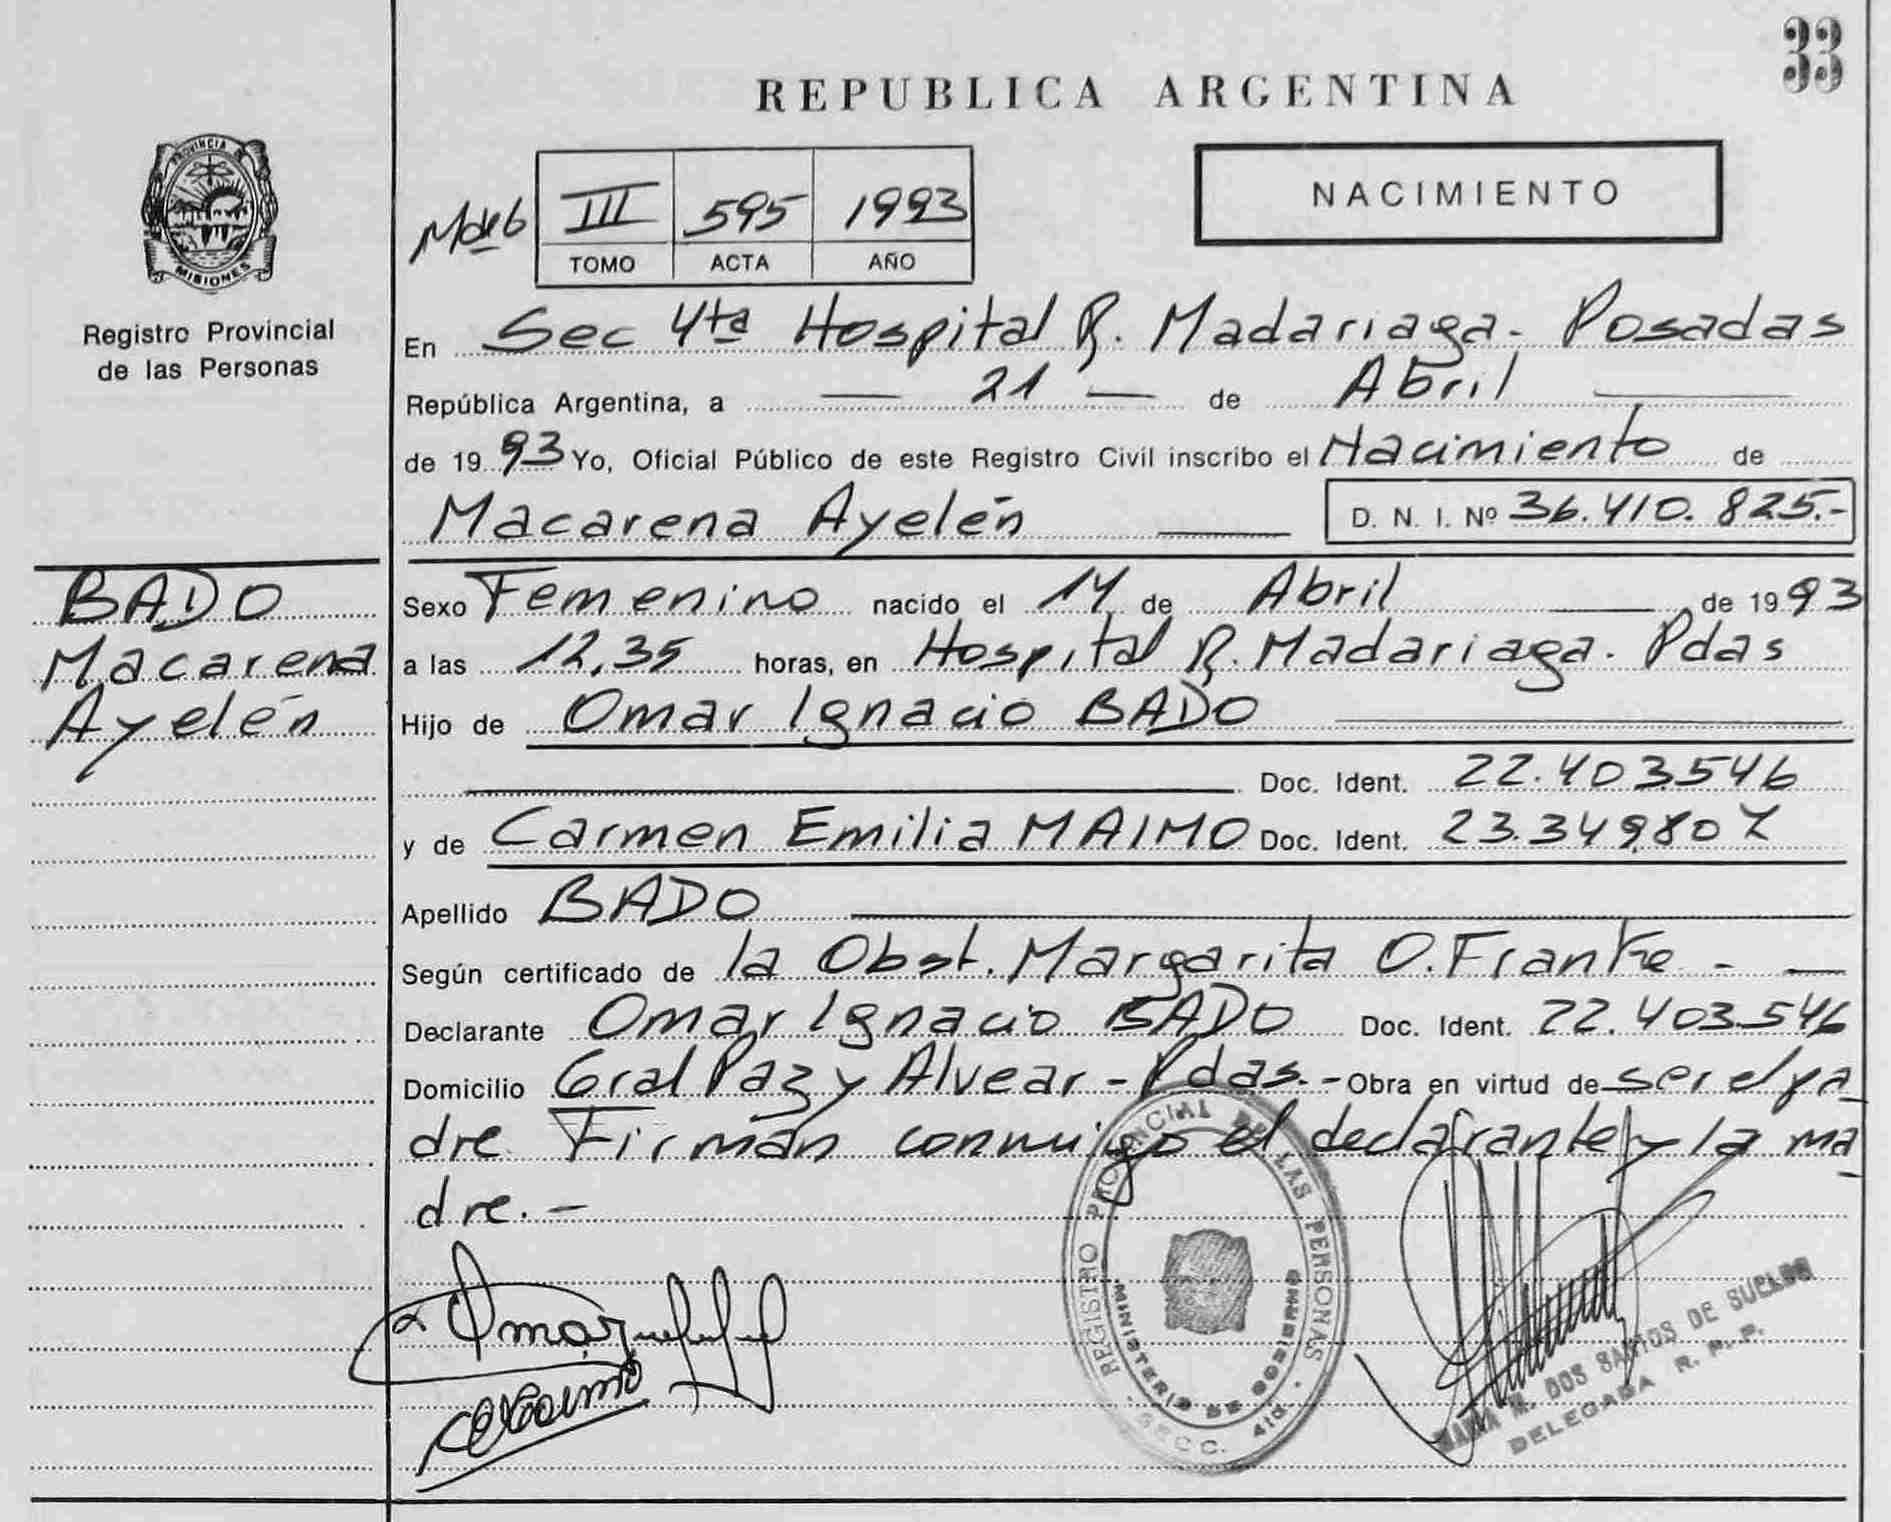 33
REPUBLICA ARGENTINA
PROVINCIA DE
MISIONES
Registro Provincial
de las Personas
III 595 1993
TOMO ACTA AÑO
NACIMIENTO
En Sec 4ta Hospital R. Madariaga - Posadas
República Argentina, a — 21 — de Abril
de 1993 Yo, Oficial Público de este Registro Civil inscribo el Nacimiento de
Macarena Ayelén D. N. I. Nº 36.410.825.-
BADO
Macarena
Ayelén
Sexo Femenino nacido el 14 de Abril de 1993
a las 12,35 horas, en Hospital R. Madariaga. Pdas
Hijo de Omar Ignacio BADO
Doc. Ident. 22.403.546
y de Carmen Emilia MAIMO Doc. Ident. 23.349.807
Apellido BADO
Según certificado de la Obst. Margarita O. Franke -
Declarante Omar Ignacio BADO Doc. Ident. 22.403.546
Domicilio Gral Paz y Alvear - Pdas. - Obra en virtud de ser el pa
dre Firman conmigo el declarante y la ma
dre. -
REGISTRO PROVINCIAL DE LAS PERSONAS
MINISTERIO DE GOBIERNO
SECC. 4ta.
MARIA M. DOS SANTOS DE SUELDO
DELEGADA R. P. P.